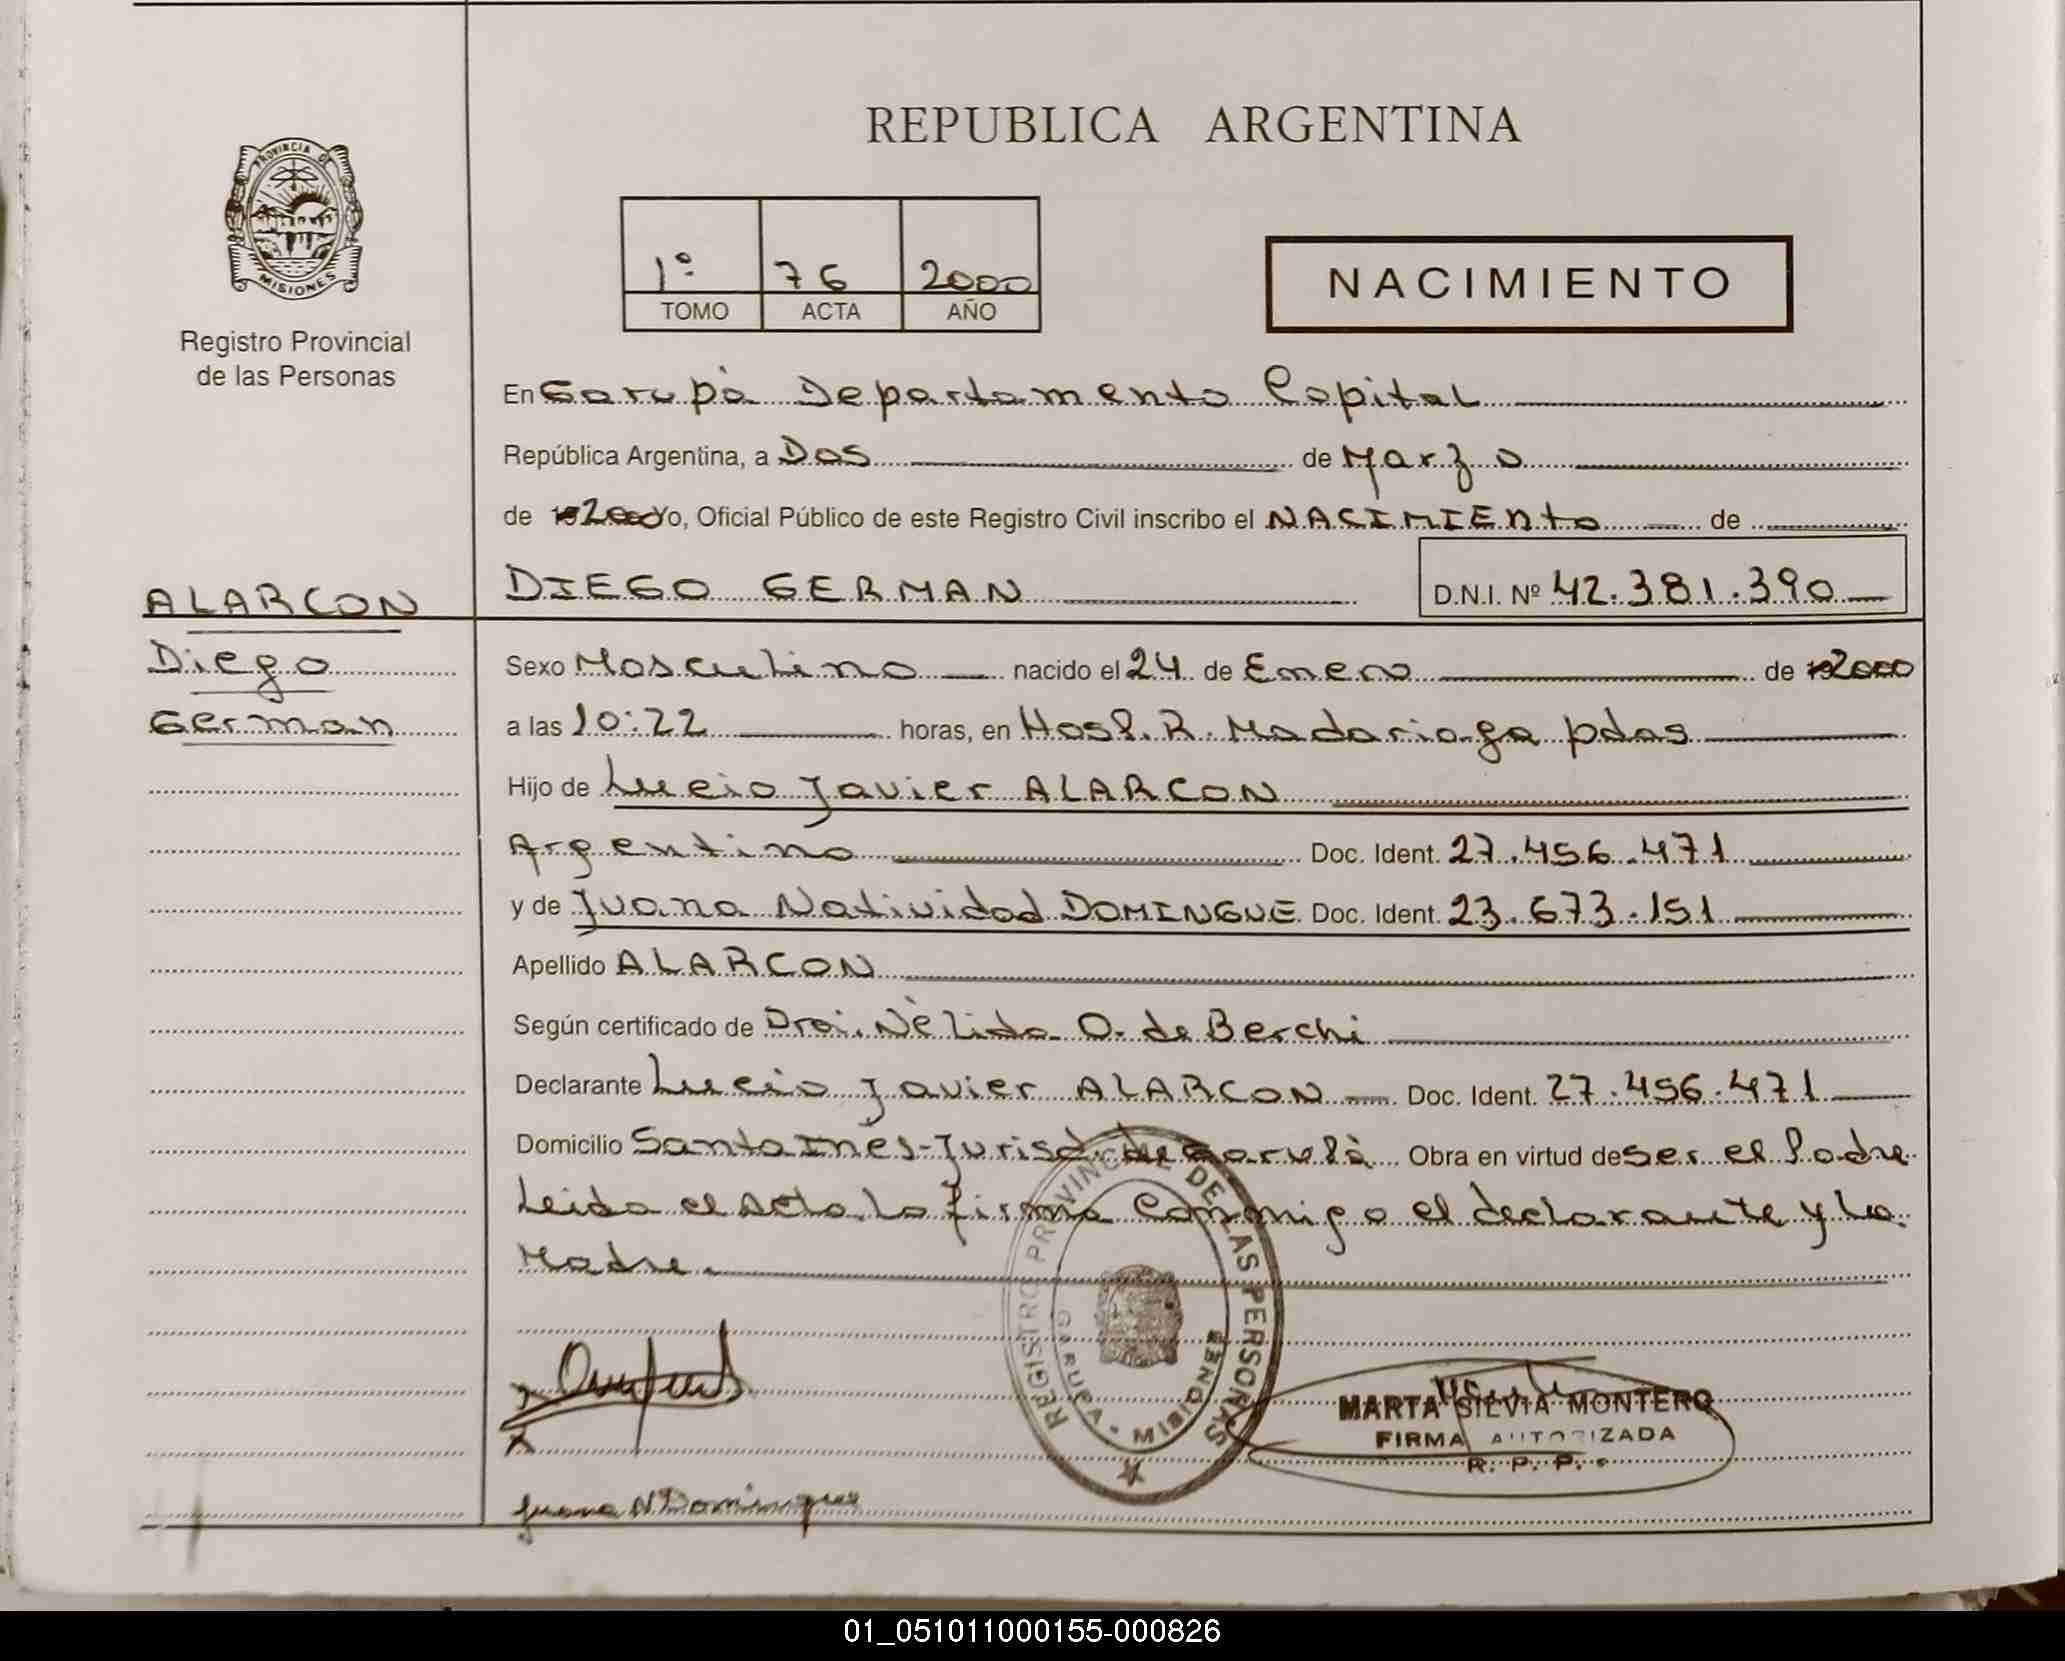 REPUBLICA ARGENTINA
PROVINCIA DE
MISIONES
Registro Provincial
de las Personas
1º 76 2000
TOMO ACTA AÑO
NACIMIENTO
En Garupà Departamento Capital
República Argentina, a Dos de Marzo
de 2000 Yo, Oficial Público de este Registro Civil inscribo el NACIMIENto de
DIEGO GERMAN D.N.I. Nº 42.381.390
ALARCON
Diego
German
Sexo Masculino nacido el 24 de Enero de 2000
a las 10:22 horas, en Hosp. R. Madariaga pdas
Hijo de Lucio Javier ALARCON
Argentino Doc. Ident. 27.456.471
y de Juana Natividad DOMINGUE Doc. Ident. 23.673.151
Apellido ALARCON
Según certificado de Dra. Nèlida O. de Berchi
Declarante Lucio Javier ALARCON Doc. Ident. 27.456.471
Domicilio Santa Inés-Jurisd. de Garupà Obra en virtud de ser el Padre
Leida el Acta La firma Conmigo el declarante y La
Madre.
REGISTRO PROVINCIAL DE LAS PERSONAS
GARUPA • MISIONES
MARTA SILVIA MONTERO
FIRMA AUTORIZADA
R. P. P.
Juana N Domingue
01_051011000155-000826